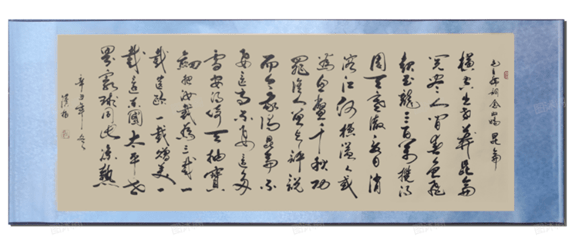 毛主席词念奴娇 昆仑
横空出世莽昆仑
阅尽人间春色飞
起玉龙三百万搅得
周天寒彻夏日消
溶江河横溢人或
为鱼鳖千秋功
罪谁人曾与评说
而今我谓昆仑不
要这高不要这多
雪安得倚天抽宝
剑把汝裁为三截一
截遗欧一截赠美一
截还东国太平世
界环球同此凉热
辛丑年冬